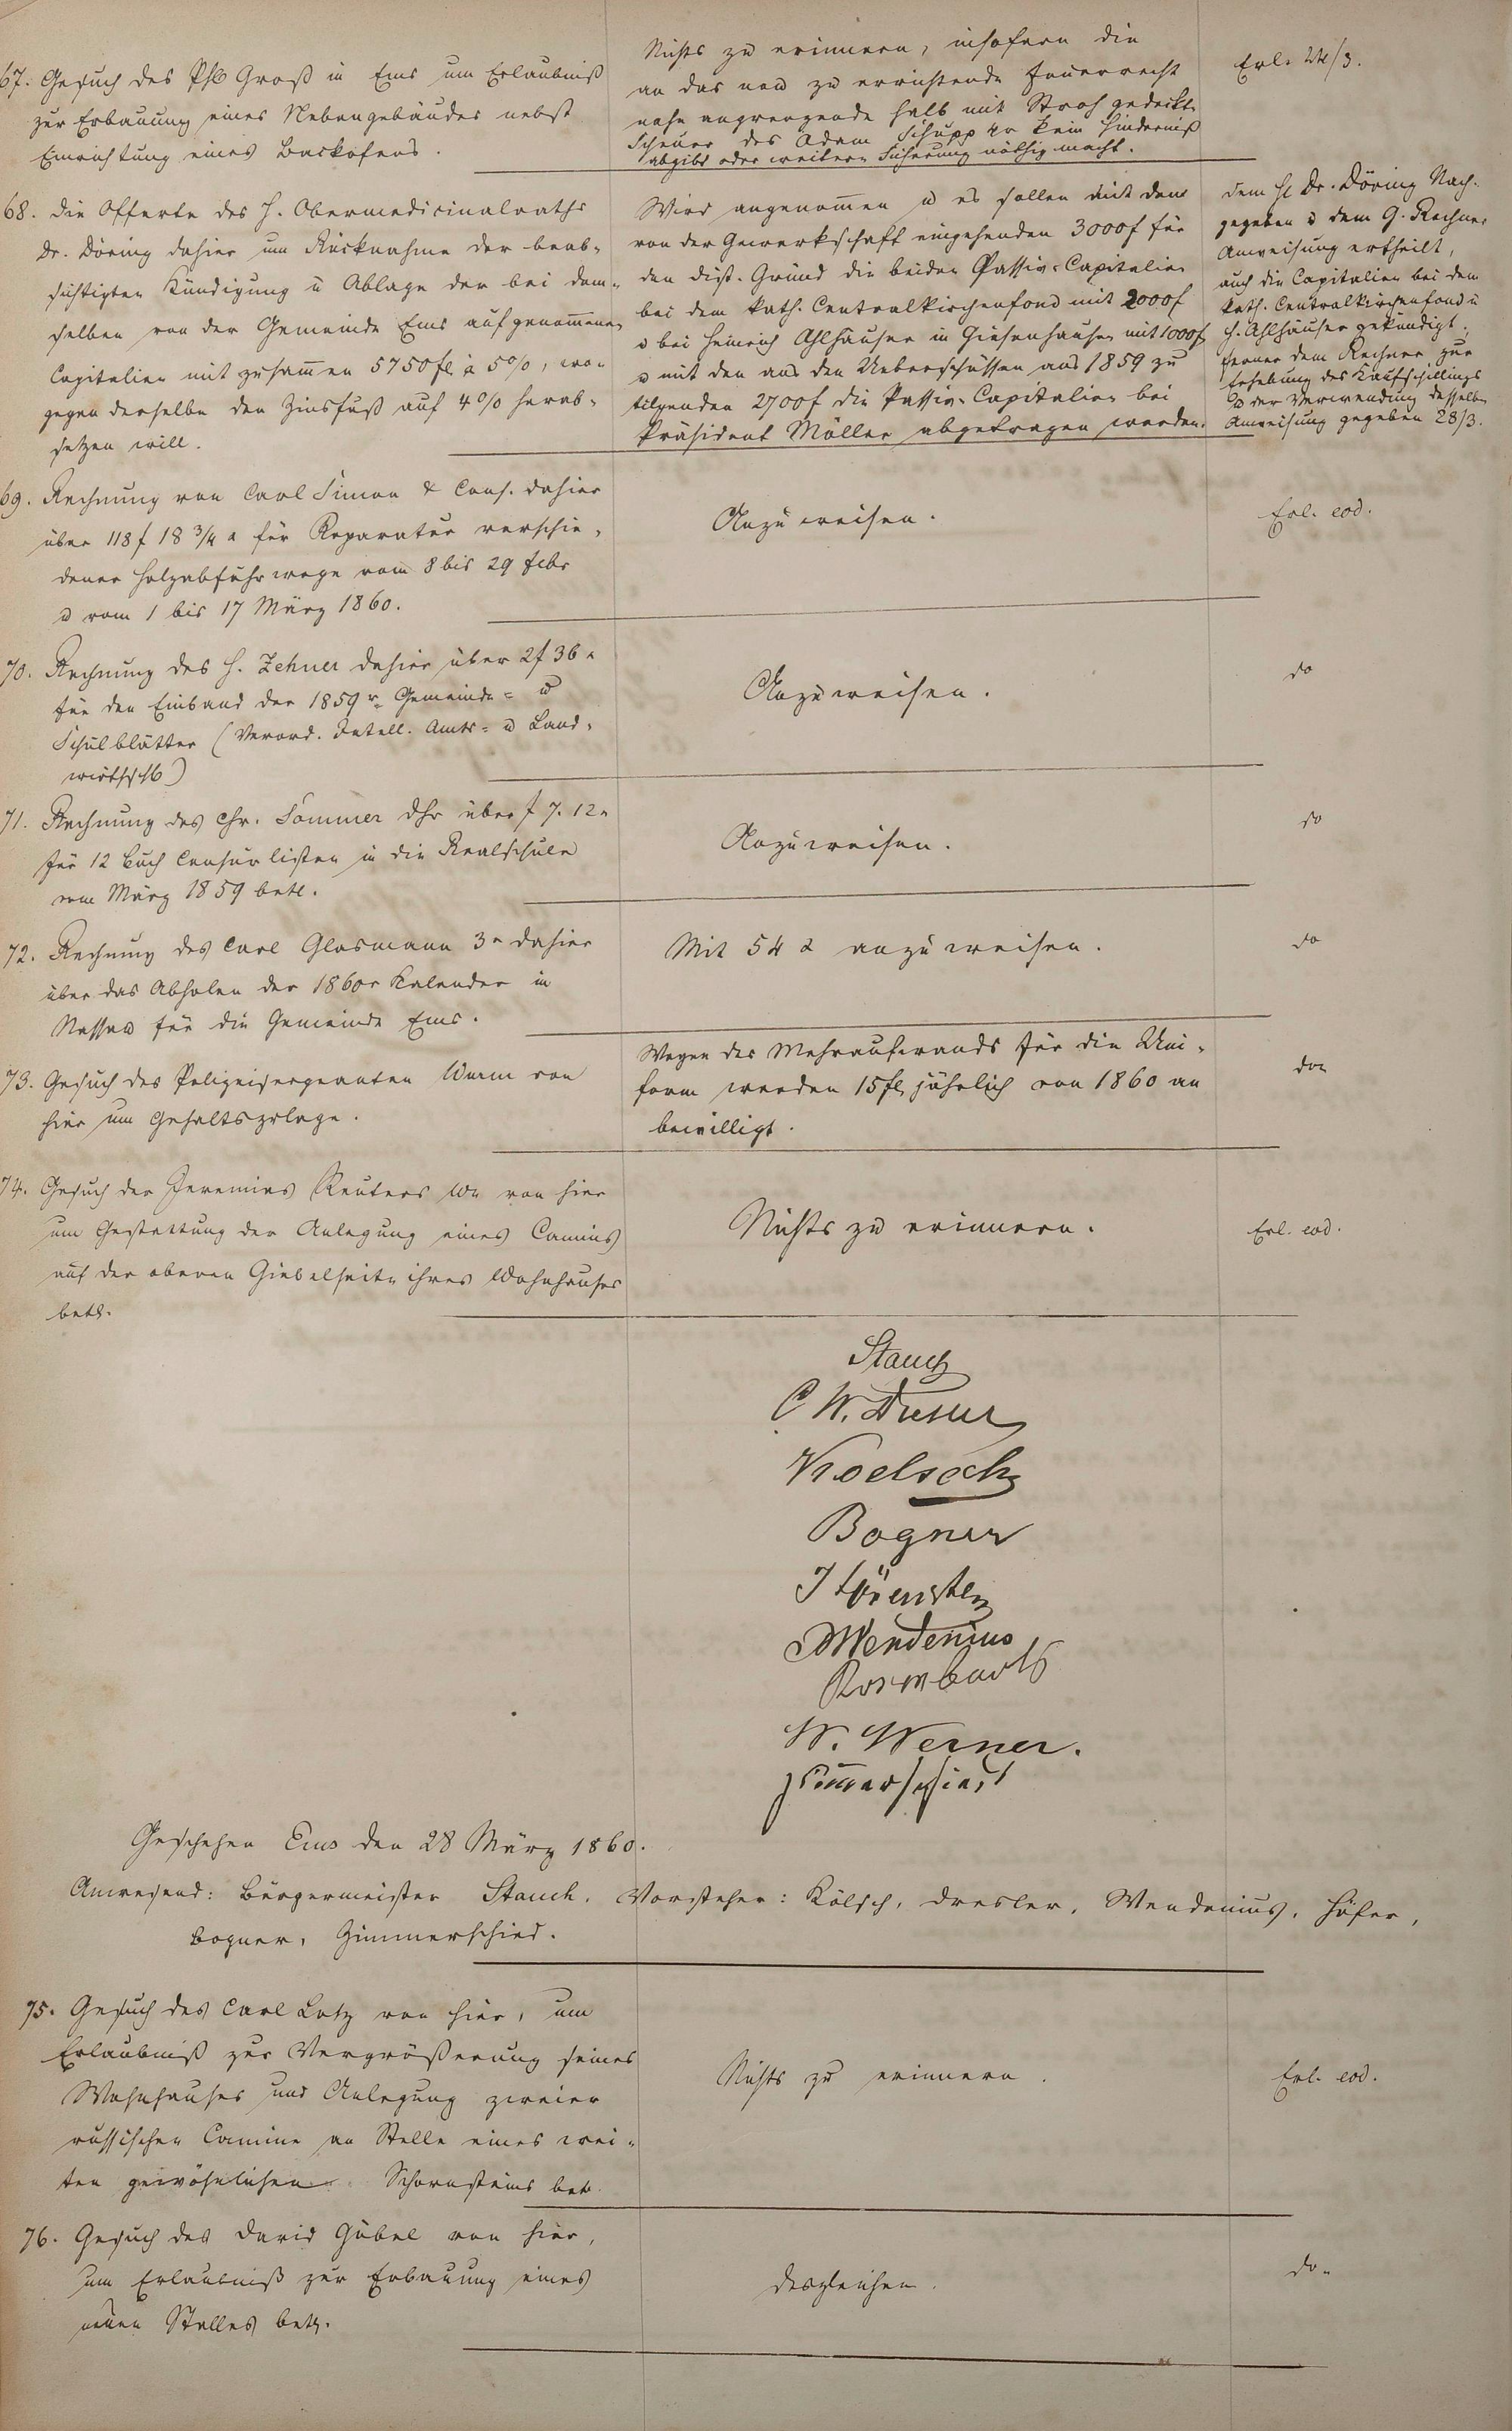 67. Gesuch des Phl Groß in Ems um Erlaubniß
zur Erbauung eines Nebengebäudes nebst
Einrichtung eines Backofens.
Nichts zu erinnern, insofern die
an das neu zu errichtende Feuerrecht
nahe angrenzende halb mit Stroh gedeckte
Scheuer des Adam Schupp 4r kein Hinderniß
abgibt oder weitere Sicherung nöthig macht.
Erl. 24/3.
68. Die Offerte des H. Obermedicinalraths
Dr. Döring dahier um Rücknahme der beab-
sichtigten Kündigung u Ablage der bei dem-
selben von der Gemeinde Ems aufgenommenen
Capitalien mit zusammen 5750 fl à 5%, wo-
gegen derselbe den Zinsfuß auf 4% herab-
setzen will.
Wird angenommen u es sollen mit dem
von der Gewerkschaft eingehenden 3000 f für
den dist. Grund die beiden Passiv-Capitalien
bei dem kath. Centralkirchenfond mit 2000 f
u bei Heinrich Ahlhäuser in Giesenhausen mit 1000 f
u mit den aus den Ueberschüssen aus 1859 zu
tilgenden 2700 f die Passiv-Capitalien bei
Präsident Möller abgetragen werden.
Dem H Dr. Döring Nach-
gegeben u dem G. Rechner
Anweisung ertheilt,
auch die Capitalien bei dem
kath. Centralkirchenfond u
H. Ahlhäuser gekündigt.
ferner dem Rechner zur
Erhebung des Kaufschillings
u der Verwendung desselben
Anweisung gegeben 28/3.
69. Rechnung von Carl Simon & Cons. dahier
über 118 f 18 3/4 x für Reparatur verschie-
dener Holzabfuhrwege vom 8 bis 29 Febr
u vom 1 bis 17 März 1860.
Anzuweisen.
Erl. eod.
70. Rechnung des H. Zehner dahier über 2 f 36 x
für den Einband der 1859r Gemeinde- u
Schulblätter (Verord. Intell. Amts- u Land-
wirthschb)
Anzuweisen.
do
71. Rechnung des Chr. Sommer dhr über f 7. 12 x
für 12 Buch Censurlisten in die Realschule
vom März 1859 betr.
Anzuweisen.
do
72. Rechnung des Carl Glasmann 3r dahier
über das Abholen der 1860r Kalender in
Nassau für die Gemeinde Ems.
Mit 54 x anzuweisen.
do
73. Gesuch des Polizeisergeanten Wurm von
hier um Gehaltszulage.
Wegen des Mehraufwands für die Uni-
form werden 15 fl jährlich von 1860 an
bewilligt.
do
74. Gesuch der Jeremias Reuters We von hier
um Gestattung der Anlegung eines Camins
auf der oberen Giebelseite ihres Wohnhauses
betr.
Nichts zu erinnern.
Erl. eod.
Stauch
C W. Dresler
Koelsch
Bogner
Wendenius
W. Werner.
Zimmerschied
Geschehen Ems den 28 März 1860.
Anwesend: Bürgermeister Stauch. Vorsteher: Kölsch, Dresler, Wendenius, Höfer,
Bogner, Zimmerschied.
75. Gesuch des Carl Lotz von hier, um
Erlaubniß zur Vergrößerung seines
Wohnhauses und Anlegung zweier
russischen Camine an Stelle eines wei-
ten gewöhnlichen Schornsteins betr
Nichts zu erinnern.
Erl. eod.
76. Gesuch des David Göbel von hier,
um Erlaubniß zur Erbauung eines
neuen Stalles betr.
desgleichen.
do